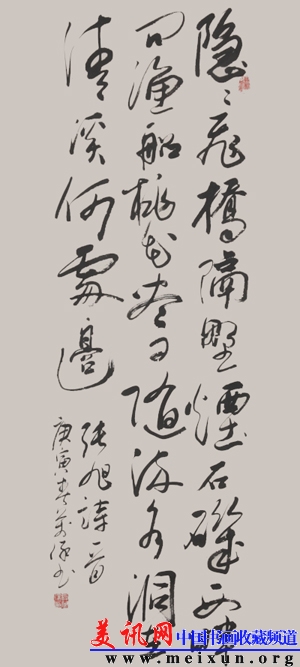 隐ミ飛橋隔野煙石磯西畔
问渔船桃花尽日随流水洞在
清溪何處邊
张旭詩一首
庚寅春
美讯网
中国书画收藏频道
www.meixun.org